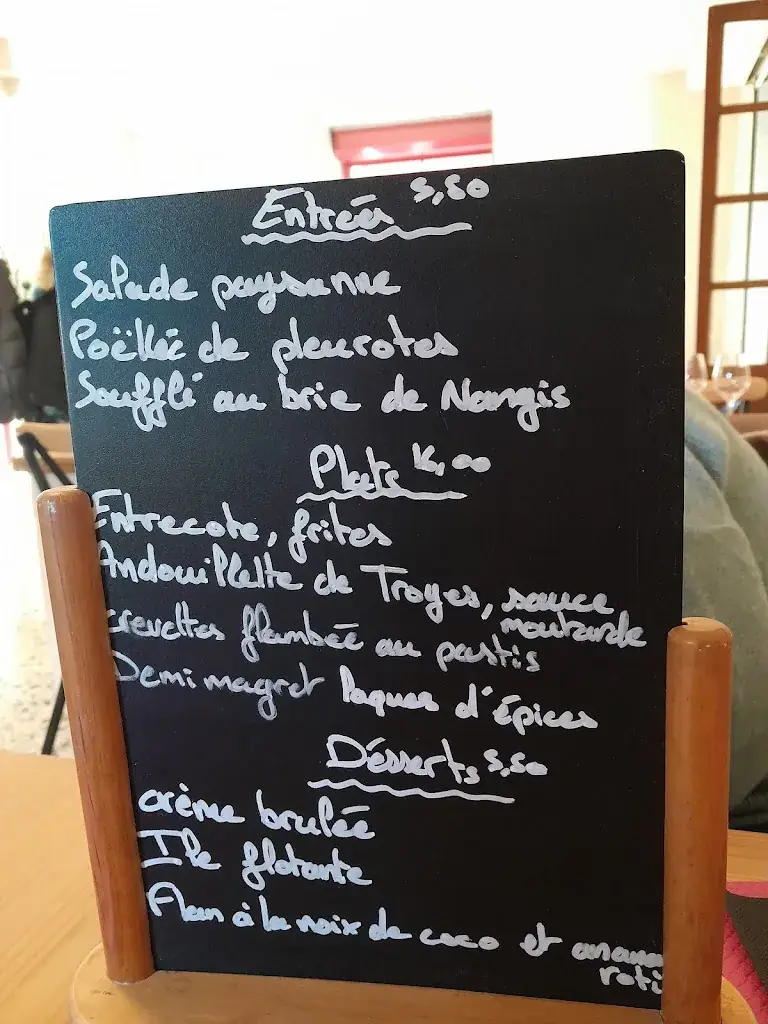 Entrées 5,50
Salade paysanne
Poëllée de pleurotes
Soufflé au brie de Nangis
Plats 16,00
Entrecote, frites
Andouillette de Troyes, sauce
moutarde
crevettes flambée au pastis
Demi magret laques d'épices
Désserts 5,50
crème brulée
Ile flotante
Flan à la noix de coco et anana
roti